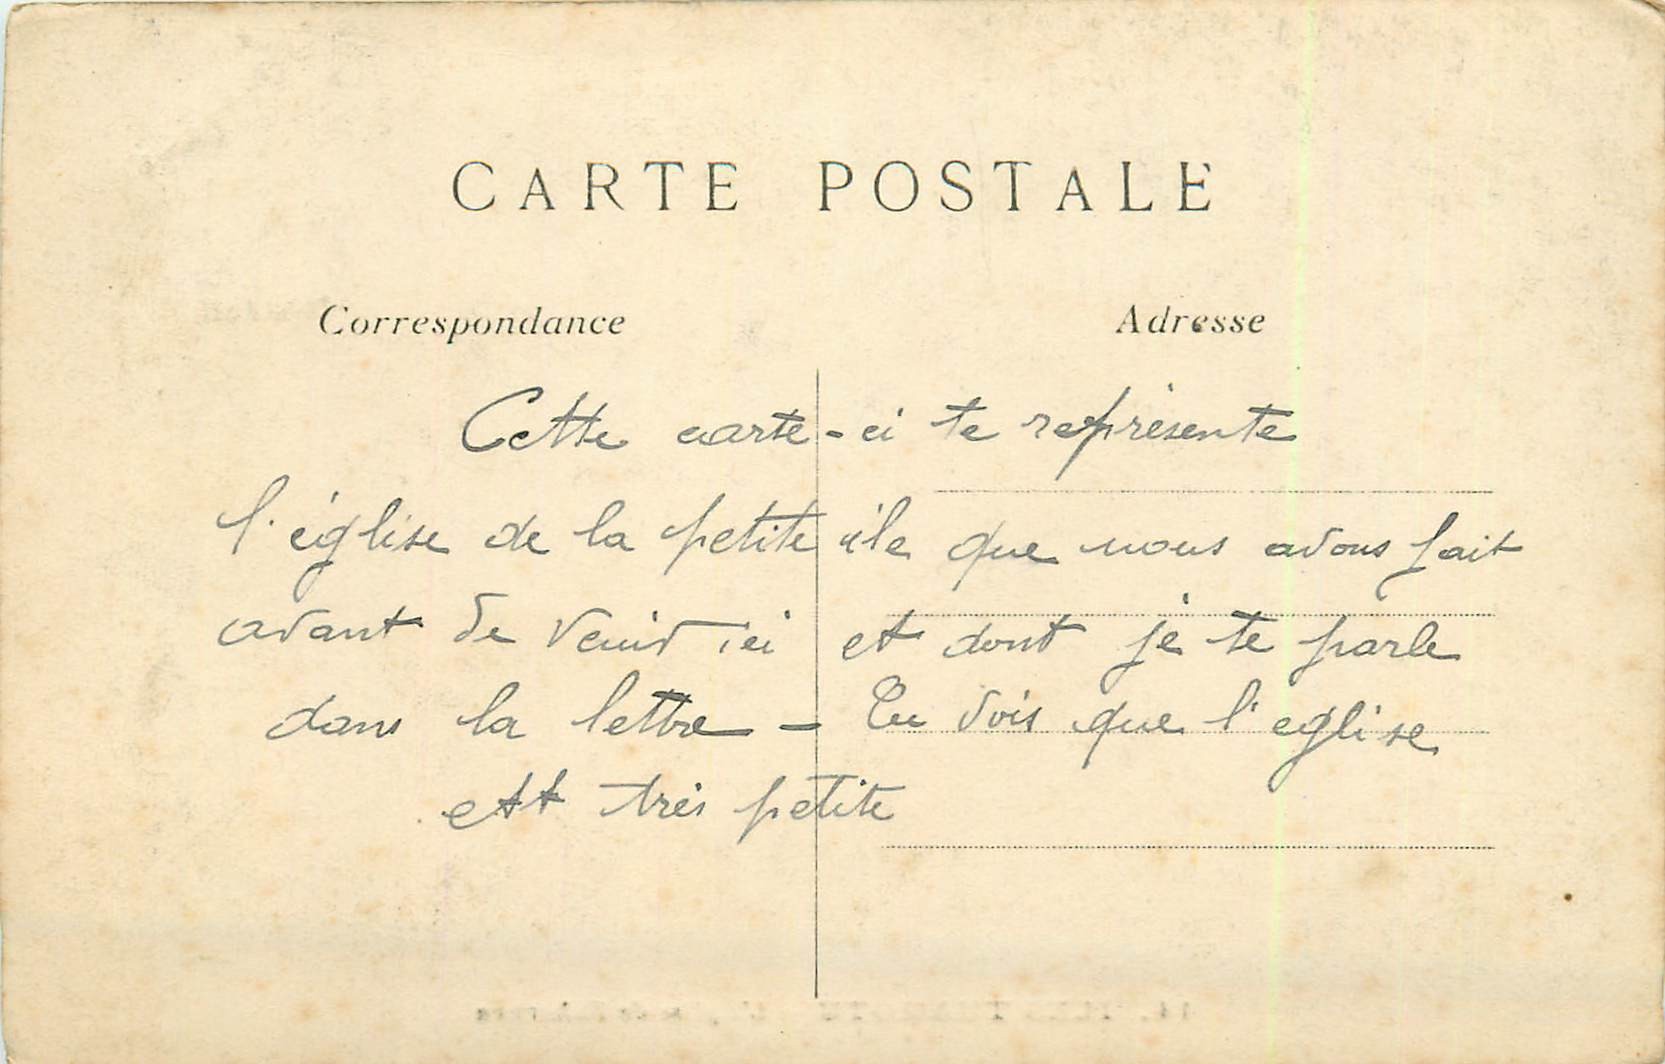 CARTE POSTALE
Correspondance
Adresse
Cette carte-ci te représente
l'église de la petite ile que nous avons fait
avant de venir ici et dont je te parle
dans la lettre – Tu vois que l'eglise
est très petite